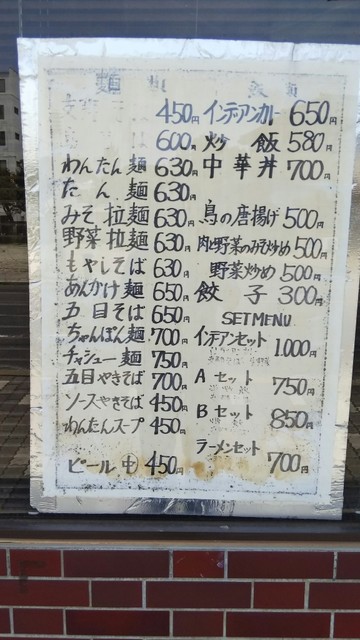 麺 類
450円
600円
わんたん麺 630円
たん麺 630円
みそ拉麺 630円
野菜拉麺 630円
もやしそば 630円
あんかけ麺 650円
五目そば 650円
ちゃんぽん麺 700円
チャシュー麺 750円
五目やきそば 700円
ソースやきそば 450円
わんたんスープ 450円
ビール 中 450円
飯 類
インデアンカレー 650円
炒飯 580円
中華丼 700円
鳥の唐揚げ 500円
肉と野菜のみそ炒め 500円
野菜炒め 500円
餃子 300円
SETMENU
インデアンセット 1.000円
Aセット 750円
Bセット 850円
ラーメンセット 700円